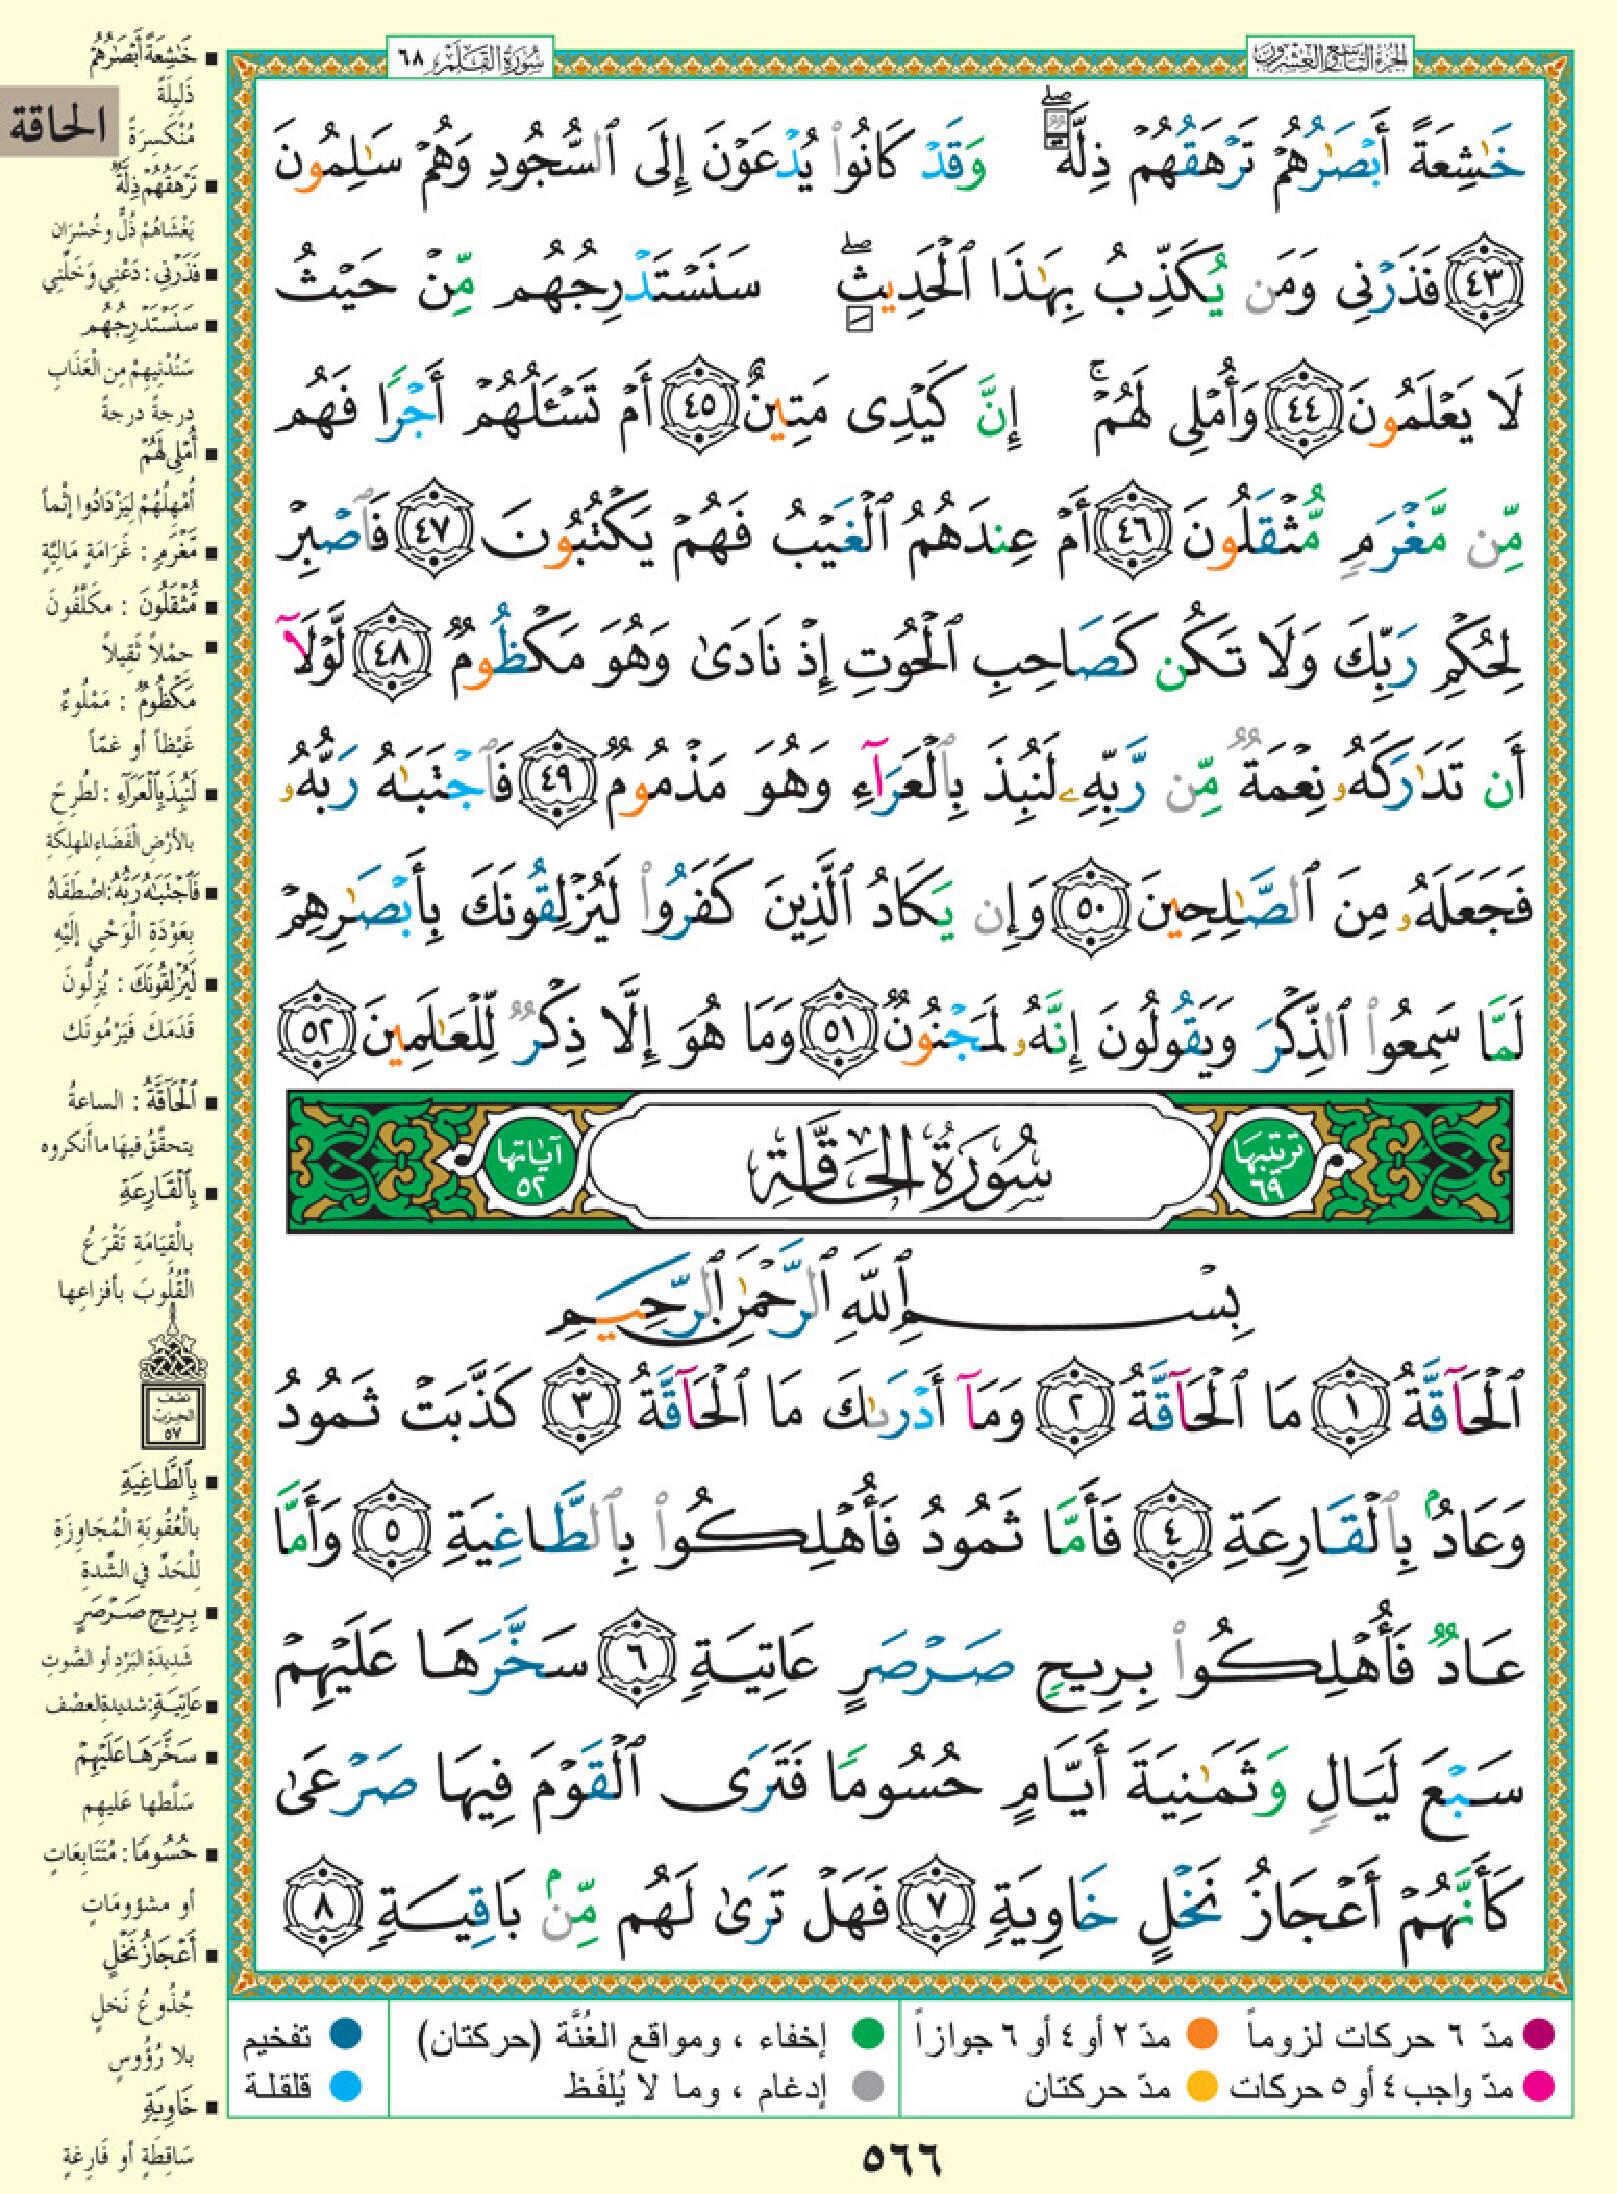 الجزء التاسع والعشرون
سورة القلم ٦٨
خَٰشِعَةً أَبْصَٰرُهُمْ تَرْهَقُهُمْ ذِلَّةٌۖ وَقَدْ كَانُوا۟ يُدْعَوْنَ إِلَى ٱلسُّجُودِ وَهُمْ سَٰلِمُونَ
﴿٤٣﴾ فَذَرْنِى وَمَن يُكَذِّبُ بِهَٰذَا ٱلْحَدِيثِۖ سَنَسْتَدْرِجُهُم مِّنْ حَيْثُ
لَا يَعْلَمُونَ ﴿٤٤﴾ وَأُمْلِى لَهُمْۚ إِنَّ كَيْدِى مَتِينٌ ﴿٤٥﴾ أَمْ تَسْـَٔلُهُمْ أَجْرًا فَهُم
مِّن مَّغْرَمٍ مُّثْقَلُونَ ﴿٤٦﴾ أَمْ عِندَهُمُ ٱلْغَيْبُ فَهُمْ يَكْتُبُونَ ﴿٤٧﴾ فَٱصْبِرْ
لِحُكْمِ رَبِّكَ وَلَا تَكُن كَصَاحِبِ ٱلْحُوتِ إِذْ نَادَىٰ وَهُوَ مَكْظُومٌ ﴿٤٨﴾ لَّوْلَآ
أَن تَدَٰرَكَهُۥ نِعْمَةٌ مِّن رَّبِّهِۦ لَنُبِذَ بِٱلْعَرَآءِ وَهُوَ مَذْمُومٌ ﴿٤٩﴾ فَٱجْتَبَٰهُ رَبُّهُۥ
فَجَعَلَهُۥ مِنَ ٱلصَّٰلِحِينَ ﴿٥٠﴾ وَإِن يَكَادُ ٱلَّذِينَ كَفَرُوا۟ لَيُزْلِقُونَكَ بِأَبْصَٰرِهِمْ
لَمَّا سَمِعُوا۟ ٱلذِّكْرَ وَيَقُولُونَ إِنَّهُۥ لَمَجْنُونٌ ﴿٥١﴾ وَمَا هُوَ إِلَّا ذِكْرٌ لِّلْعَٰلَمِينَ ﴿٥٢﴾
ترتيبها ٦٩
سُورَةُ الحَاقَّةِ
آياتها ٥٢
بِسْمِ ٱللَّهِ ٱلرَّحْمَٰنِ ٱلرَّحِيمِ
ٱلْحَآقَّةُ ﴿١﴾ مَا ٱلْحَآقَّةُ ﴿٢﴾ وَمَآ أَدْرَىٰكَ مَا ٱلْحَآقَّةُ ﴿٣﴾ كَذَّبَتْ ثَمُودُ
وَعَادٌۢ بِٱلْقَارِعَةِ ﴿٤﴾ فَأَمَّا ثَمُودُ فَأُهْلِكُوا۟ بِٱلطَّاغِيَةِ ﴿٥﴾ وَأَمَّا
عَادٌ فَأُهْلِكُوا۟ بِرِيحٍ صَرْصَرٍ عَاتِيَةٍ ﴿٦﴾ سَخَّرَهَا عَلَيْهِمْ
سَبْعَ لَيَالٍ وَثَمَٰنِيَةَ أَيَّامٍ حُسُومًا فَتَرَى ٱلْقَوْمَ فِيهَا صَرْعَىٰ
كَأَنَّهُمْ أَعْجَازُ نَخْلٍ خَاوِيَةٍ ﴿٧﴾ فَهَلْ تَرَىٰ لَهُم مِّنۢ بَاقِيَةٍ ﴿٨﴾
الحاقة
■ خَٰشِعَةً أَبْصَٰرُهُمْ
ذَلِيلَةً
مُنْكَسِرَةً
■ تَرْهَقُهُمْ ذِلَّةٌ
يَغْشَاهُمْ ذُلٌّ وخُسْرَان
■ فَذَرْنِى : دَعْنِي وَخَلِّنِي
■ سَنَسْتَدْرِجُهُم
سَنُدْنِيهِمْ مِن الْعَذَابِ
درجةً درجةً
■ أُمْلِى لَهُمْ
أُمْهِلُهُمْ لِيَزْدَادُوا إثْماً
■ مَّغْرَمٍ : غَرَامَةٍ مَالِيَّةٍ
■ مُّثْقَلُونَ : مكَلَّفُونَ
■ حِمْلاً ثَقِيلاً
مَكْظُومٌ : مَمْلُوءٌ
غَيْظاً أو غمّاً
■ لَنُبِذَ بِٱلْعَرَآءِ : لطُرِحَ
بالأرْضِ الْفَضَاءِ المهلِكَةِ
■ فَٱجْتَبَٰهُ رَبُّهُ : اصْطَفَاهُ
بِعَوْدَةِ الْوَحْي إلَيْهِ
■ لَيُزْلِقُونَكَ : يُزِلُّونَ
قَدَمَكَ فَيَرْمُونَك
■ ٱلْحَآقَّةُ : الساعةُ
يتحقَّقُ فيها ما أنكروه
■ بِٱلْقَارِعَةِ
بالْقِيَامَةِ تَقْرَعُ
الْقُلُوبَ بأفزاعِها
نصف
الحزب
٥٧
■ بِٱلطَّاغِيَةِ
بالْعُقُوبَةِ الْمُجَاوِزَةِ
لِلْحَدِّ في الشِّدةِ
■ بِرِيحٍ صَرْصَرٍ
شَدِيدَةِ البَرْدِ أو الصَّوتِ
■ عَاتِيَةٍ : شديدةِ العصْف
■ سَخَّرَهَا عَلَيْهِمْ
سَلَّطها عَليهِم
■ حُسُومًا : مُتَتَابِعَاتٍ
أو مشؤومَاتٍ
■ أَعْجَازُ نَخْلٍ
جُذُوعُ نَخلٍ
بلا رُؤُوسٍ
■ خَاوِيَةٍ
سَاقِطَةٍ أو فَارِغةٍ
مدّ ٦ حركات لزوماً
مدّ ٢ أو ٤ أو ٦ جوازاً
إخفاء ، ومواقع الغُنَّة (حركتان)
تفخيم
مدّ واجب ٤ أو ٥ حركات
مدّ حركتان
إدغام ، وما لا يُلفَظ
قلقلة
٥٦٦